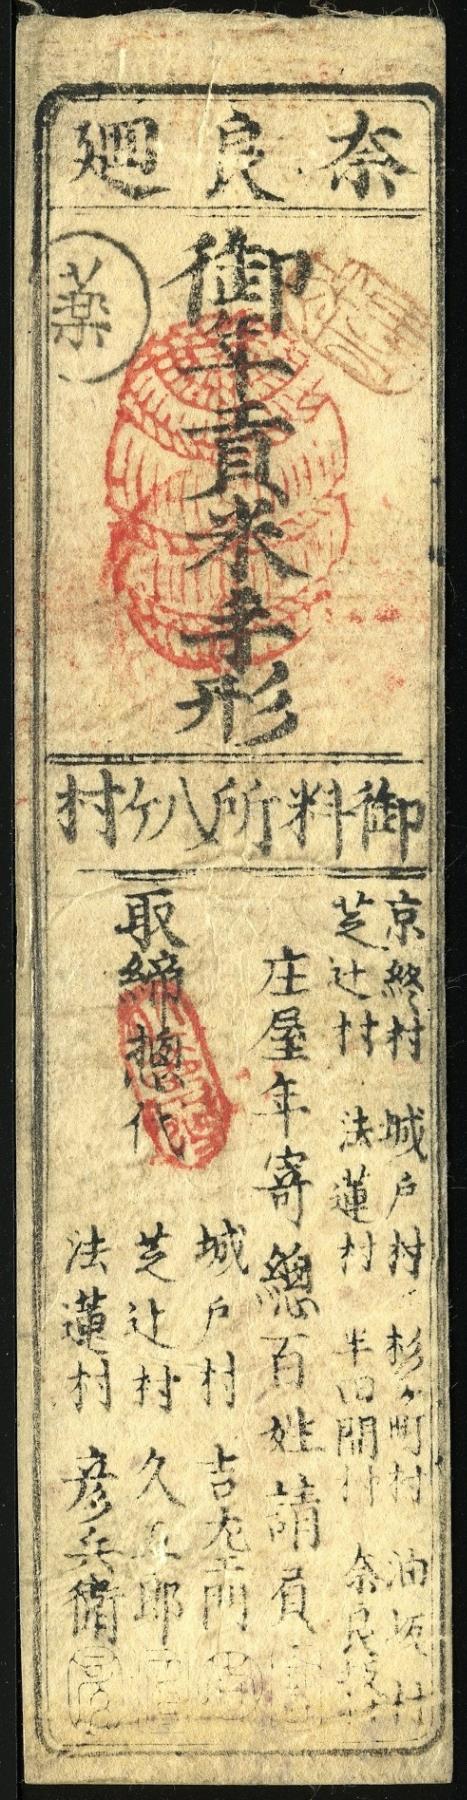 奈良廻
御年貢米手形
薬
御料所八ケ村
京終村 城戸村 杉ケ町村 油坂村
芝辻村 法蓮村 半田開村 奈良坂村
庄屋年寄總百姓請負
取締惣代
城戸村 吉左衛門
芝辻村 久五郎
法蓮村 彦兵衛